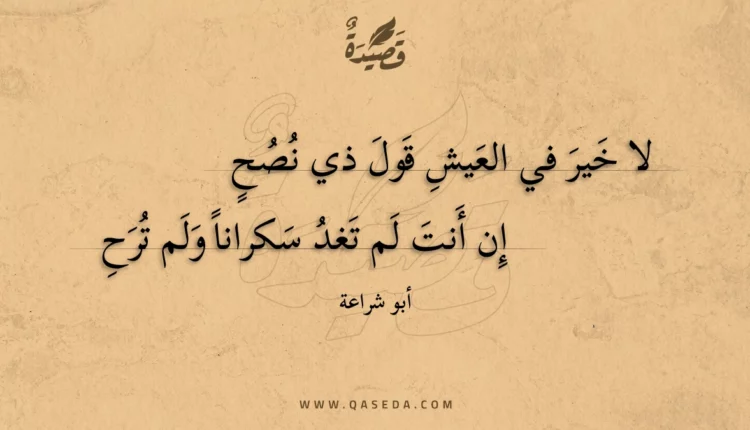 قَصِيدَةٌ
لا خَيرَ في العَيشِ قَولَ ذي نُصُحٍ
إِن أَنتَ لَم تَغدُ سَكراناً وَلَم تُرَحِ
أبو شراعة
WWW.QASEDA.COM